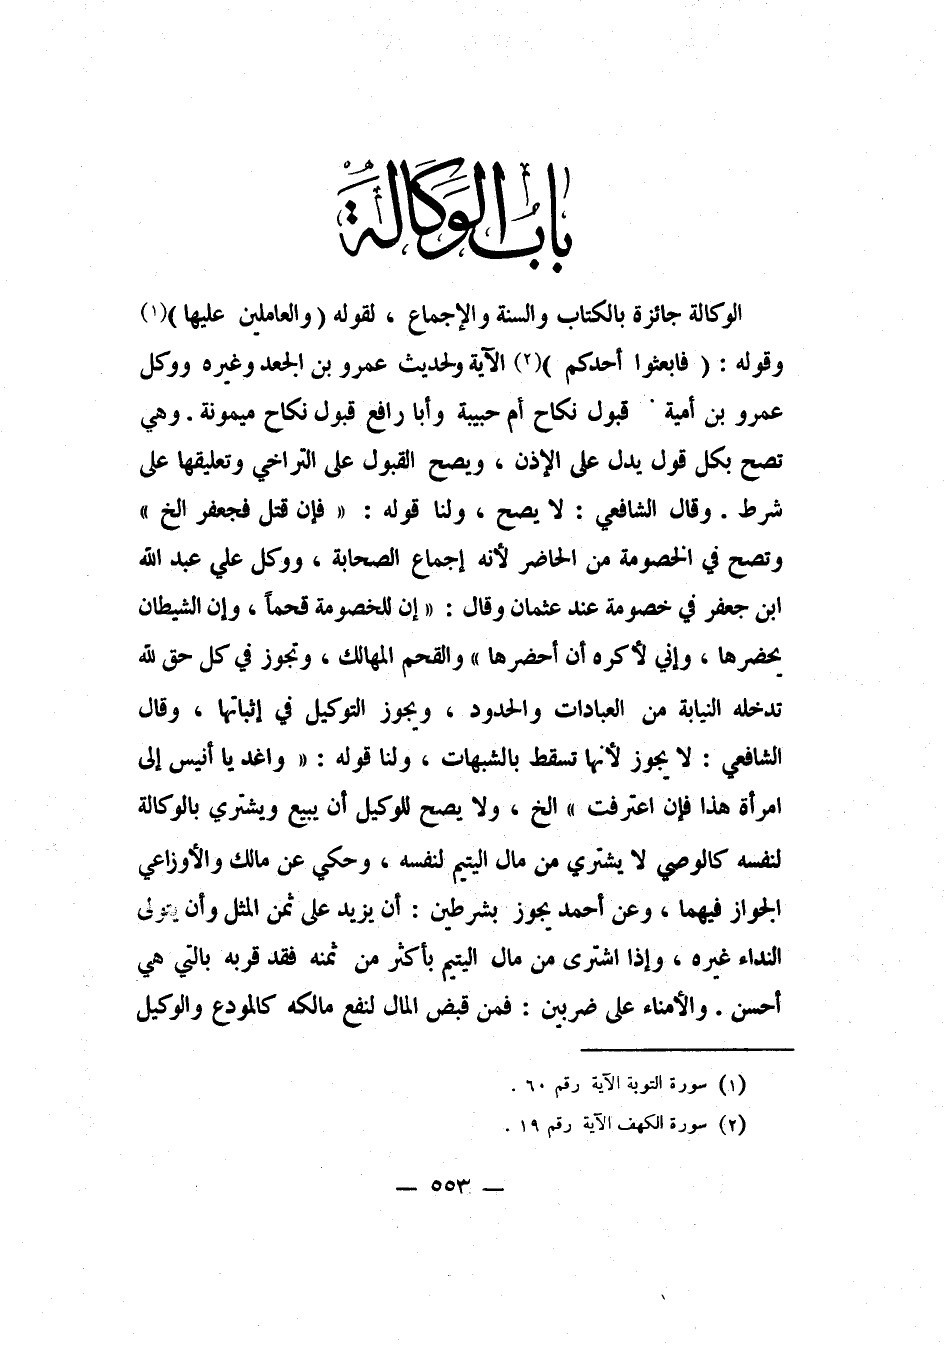 باب الوكالة
الوكالة جائزة بالكتاب والسنة والإجماع ، لقوله ( والعاملين عليها )(١)
وقوله : ( فابعثوا أحدكم )(٢) الآية ولحديث عمرو بن الجعد وغيره ووكل
عمرو بن أمية قبول نكاح أم حبيبة وأبا رافع قبول نكاح ميمونة . وهي
تصح بكل قول يدل على الإذن ، ويصح القبول على التراخي وتعليقها على
شرط . وقال الشافعي : لا يصح ، ولنا قوله : « فإن قتل فجعفر الخ »
وتصح في الخصومة من الحاضر لأنه إجماع الصحابة ، ووكل علي عبد الله
ابن جعفر في خصومة عند عثمان وقال : « إن للخصومة قحماً ، وإن الشيطان
يحضرها ، وإني لأكره أن أحضرها » والقحم المهالك ، وتجوز في كل حق لله
تدخله النيابة من العبادات والحدود ، ويجوز التوكيل في إثباتها ، وقال
الشافعي : لا يجوز لأنها تسقط بالشبهات ، ولنا قوله : « واغد يا أنيس إلى
امرأة هذا فإن اعترفت » الخ ، ولا يصح للوكيل أن يبيع ويشتري بالوكالة
لنفسه كالوصي لا يشتري من مال اليتيم لنفسه ، وحكي عن مالك والأوزاعي
الجواز فيهما ، وعن أحمد يجوز بشرطين : أن يزيد على ثمن المثل وأن يتولى
النداء غيره ، وإذا اشترى من مال اليتيم بأكثر من ثمنه فقد قربه بالتي هي
أحسن . والأمناء على ضربين : فمن قبض المال لنفع مالكه كالمودع والوكيل
(١) سورة التوبة الآية رقم ٦٠ .
(٢) سورة الكهف الآية رقم ١٩ .
— ٥٥٣ —